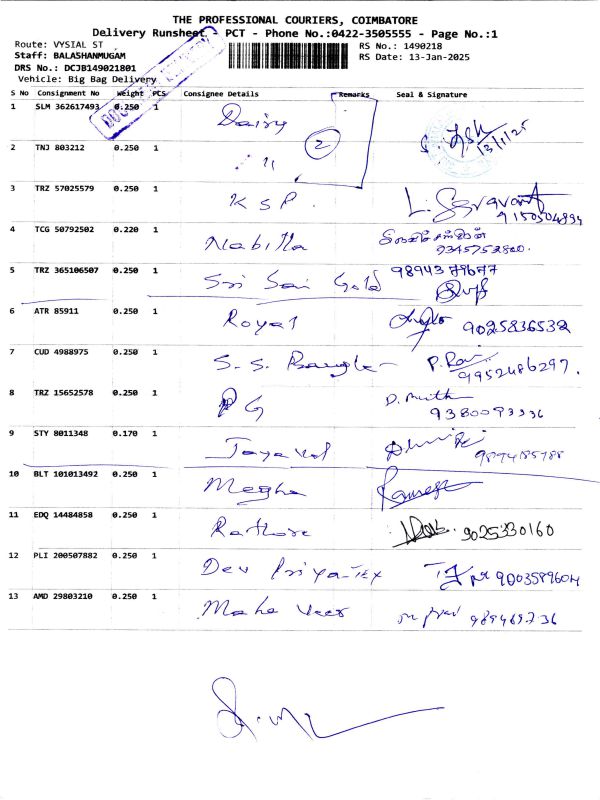 THE PROFESSIONAL COURIERS, COIMBATORE
Delivery Runsheet - PCT - Phone No.:0422-3505555 - Page No.:1
Route: VYSIAL ST RS No.: 1490218
Staff: BALASHANMUGAM RS Date: 13-Jan-2025
DRS No.: DCJB149021801
Vehicle: Big Bag Delivery
S No Consignment No Weight PCS Consignee Details Remarks Seal & Signature
1 SLM 362617493 0.250 1 Daisy 13/1/25
2 TNJ 803212 0.250 1 " 2
3 TRZ 57025579 0.250 1 K S P. L. 9150504894
4 TCG 50792502 0.220 1 Nabilla 9345752800.
5 TRZ 365106507 0.250 1 Sri Sai Gold
6 ATR 85911 0.250 1 Royal 9025836532
7 CUD 4988975 0.250 1 S. S. Bangle P. Ravi 9952486297.
8 TRZ 15652578 0.250 1 P G D. Muth 9380093336
9 STY 8011348 0.170 1
10 BLT 101013492 0.250 1 Megha Ramesh
11 EDQ 14484858 0.250 1 Rathore 9025330160
12 PLI 200507882 0.250 1 Dev Priya-Tex 9003589604
13 AMD 29803210 0.250 1 Maha Veer